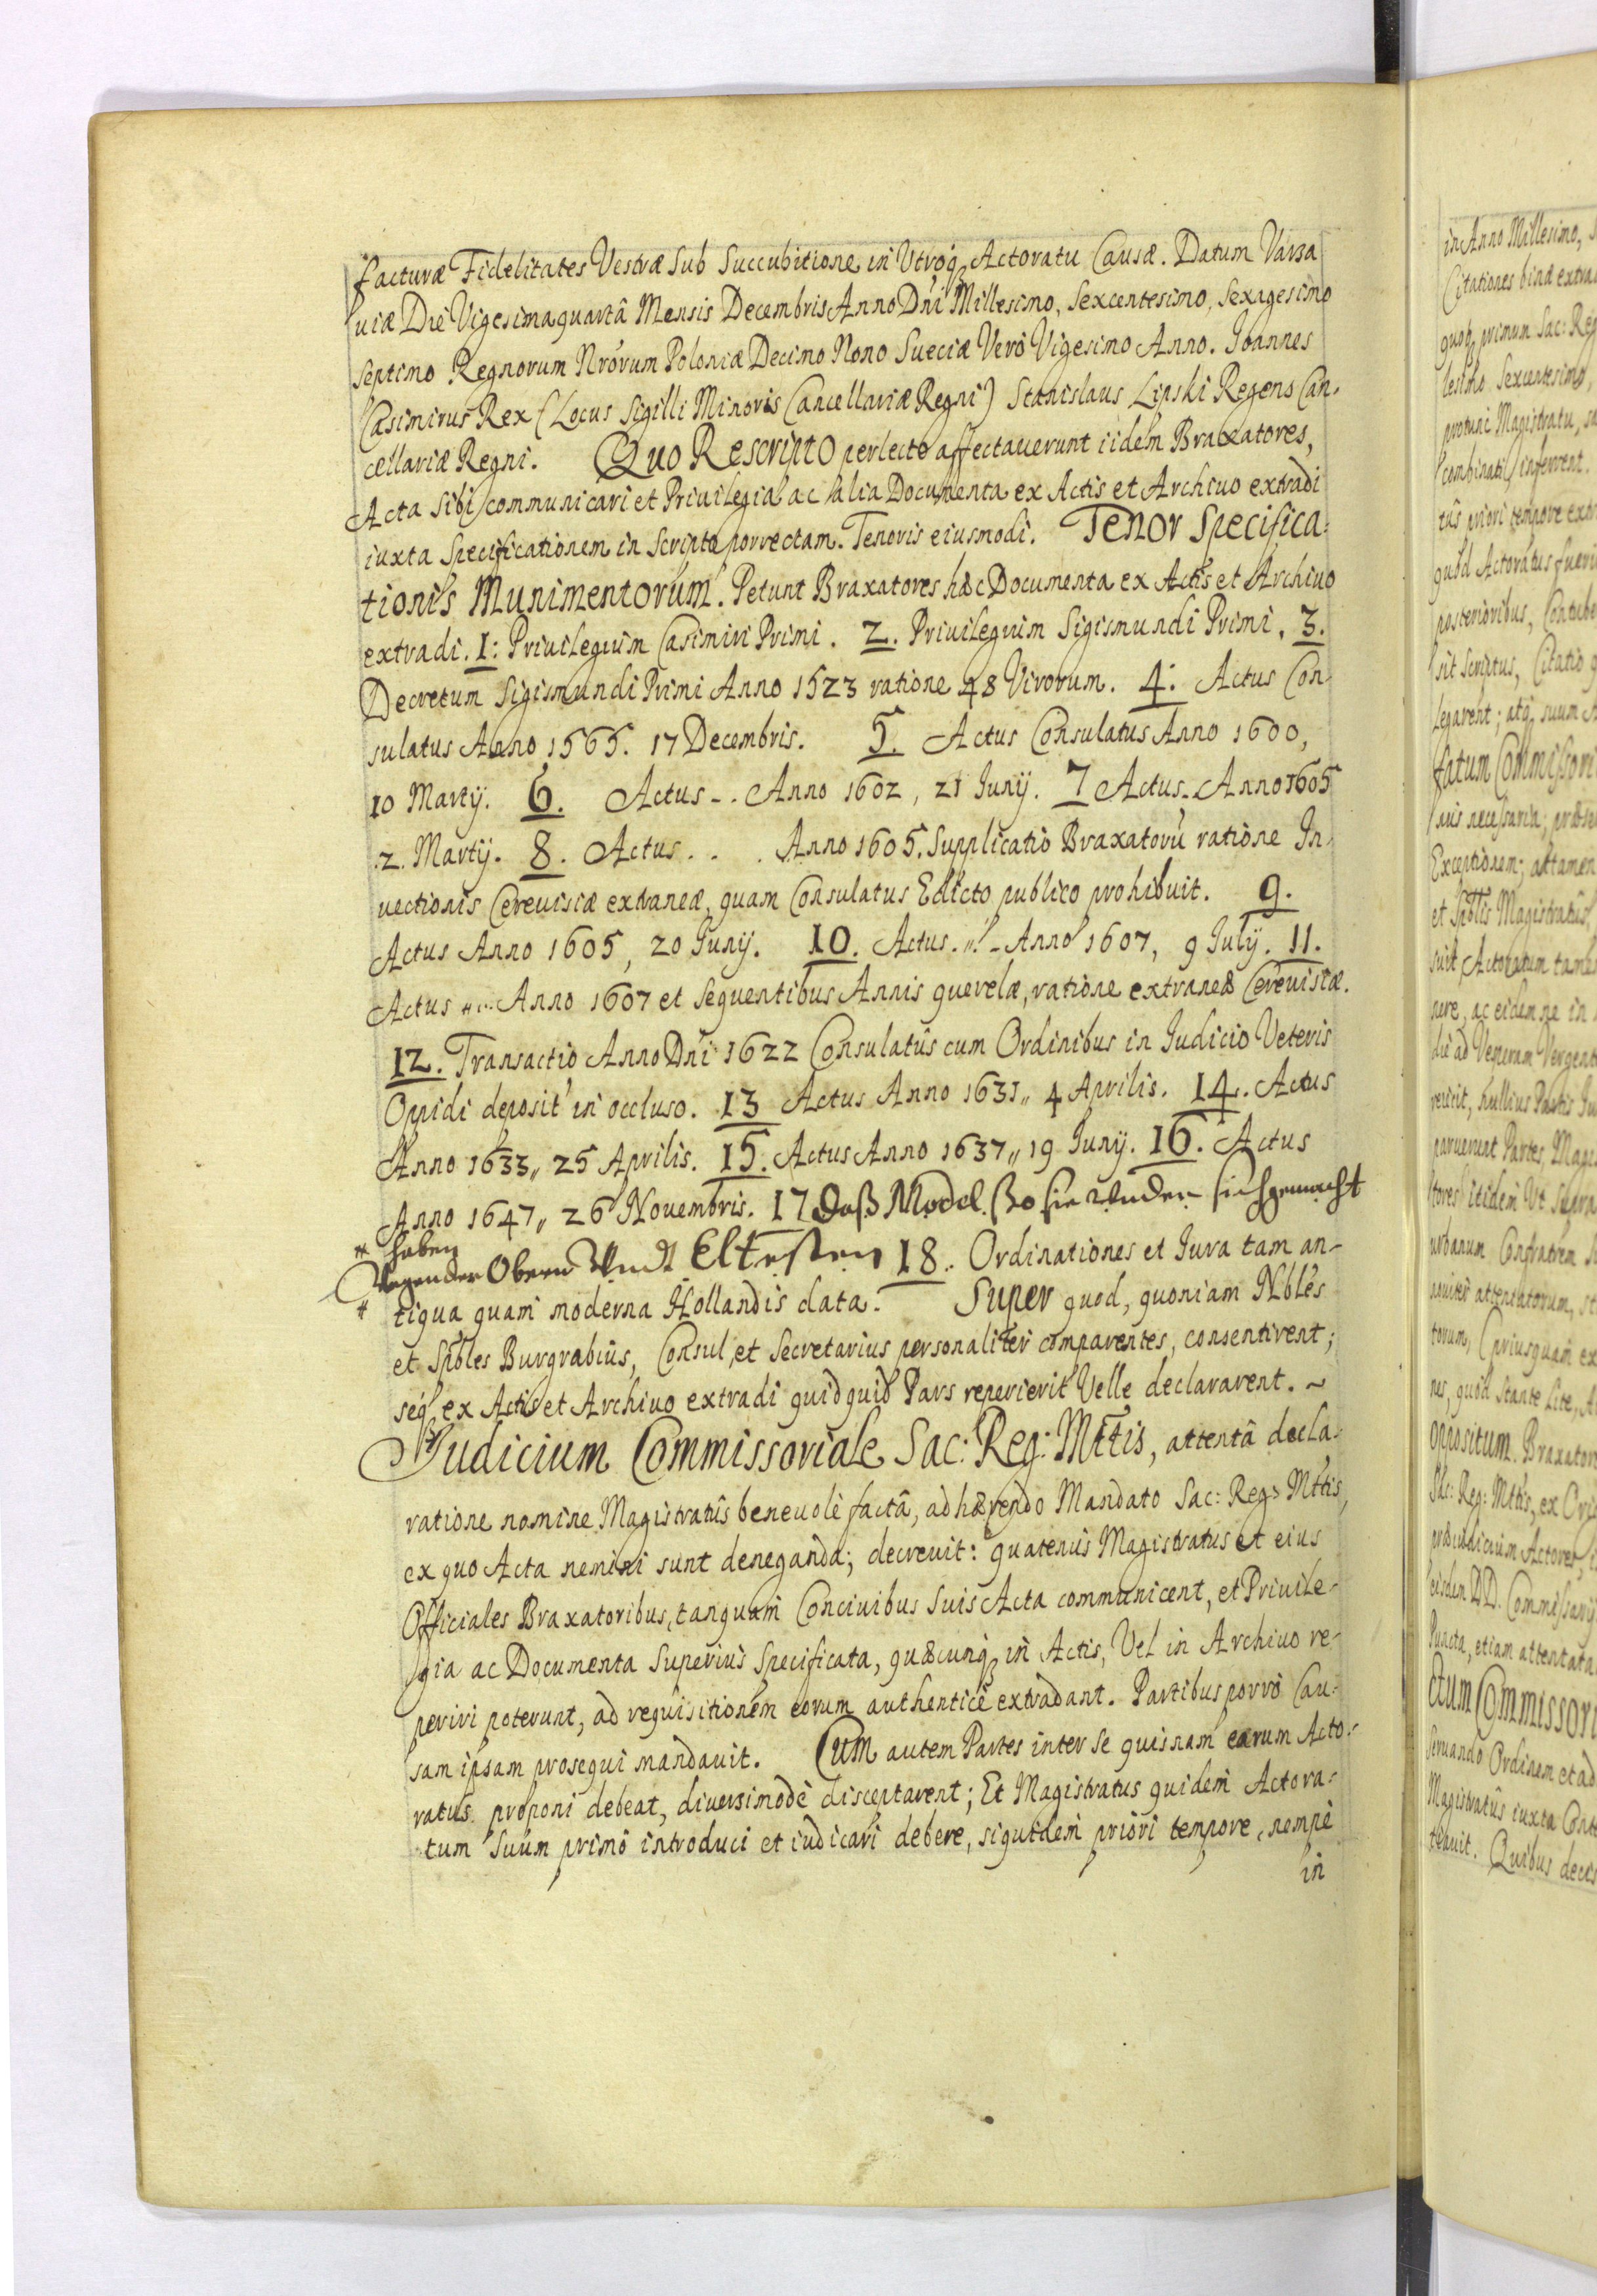 facturæ Fidelitates Vestræ sub Succubitione in Utroq Actoratu Causæ. Datum Varsa
uiæ Die Vigesimaquartâ Mensis Decembris Anno Dni Millesimo, Sexcentesimo, Sexagesimo
septimo Regnorum Nrorum Poloniæ Decimo Nono Sueciæ Verò Vigesimo Anno. Joannes
Casimirus Rex (Locus Sigilli Minoris Cancellariæ Regni) Stanislaus Lipski Regens Can-
cellariæ Regni. Quo Rescripto perlecto affectauerunt iidem Braxatores,
Acta sibi communicari et Priuilegia ac alia Documenta ex Actis et Archiuo extradi
iuxta Specificationem in Scripto porrectam. Tenoris eiusmodi. Tenor Specifica-
tionis Munimentorum. Petunt Braxatores hæc Documenta ex Actis et Archiuo
extradi. 1: Priuilegium Casimiri Primi. 2. Priuilegium Sigismundi Primi. 3.
Decretum Sigismundi Primi Anno 1523 ratione 48 Virorum. 4: Actus Con-
sulatus Anno 1565. 17 Decembris. 5. Actus Consulatus Anno 1600,
10 Martÿ. 6. Actus - . Anno 1602, 21 Junÿ. 7 Actus - Anno 1605
2. Martÿ. 8. Actus . . . Anno 1605. Supplicatio Braxatorũ ratione In-
uectionis Cereuisiæ extraneæ, quam Consulatus Edicto publico prohibuit. 9.
Actus Anno 1605, 20 Junÿ. 10. Actus . „ - Anno 1607, 9 Julÿ. 11.
Actus „ ... Anno 1607 et sequentibus Annis querelæ, ratione extraneæ Cereuisiæ.
12. Transactio Anno Dni 1622 Consulatûs cum Ordinibus in Judicio Veteris
Oppidi deposit in occluso. 13 Actus Anno 1631„ 4 Aprilis. 14. Actus
Anno 1633„ 25 Aprilis. 15. Actus Anno 1637„ 19 Junÿ. 16. Actus
Anno 1647„ 26 Nouembris. 17 Daß Model ßo sie under sich gemacht
haben
Wegen der Obern Undt Eltesten 18. Ordinationes et Jura tam an-
tiqua quam moderna Hollandis data. Super quod, quoniam Nbles
et Spbles Burgrabius, Consul, et Secretarius personaliter comparentes, consentirent;
seq ex Actis et Archiuo extradi quidquid Pars reperierit Velle declararent. ~
Judicium Commissoriale Sac: Reg: Mttis, attentâ decla-
ratione nomine Magistratûs beneuolè factâ, adhærendo Mandato Sac: Reg: Mttis,
ex quo Acta nemini sunt deneganda; decreuit: quatenus Magistratus et eius
Officiales Braxatoribus, tanquam Conciuibus suis Acta communicent, et Priuile-
gia ac Documenta Superiùs Specificata, quæcunq in Actis, Vel in Archiuo re-
periri poterunt, ad requisitionem eorum authenticè extradant. Partibus porrò Cau-
sam ipsam prosequi mandauit. Cum autem Partes inter se quisnam earum Acto-
ratus proponi debeat, diuersimodè disceptarent; Et Magistratus quidem Actora-
tum suum primò introduci et iudicari debere, siquidem priori tempore, nempè
in